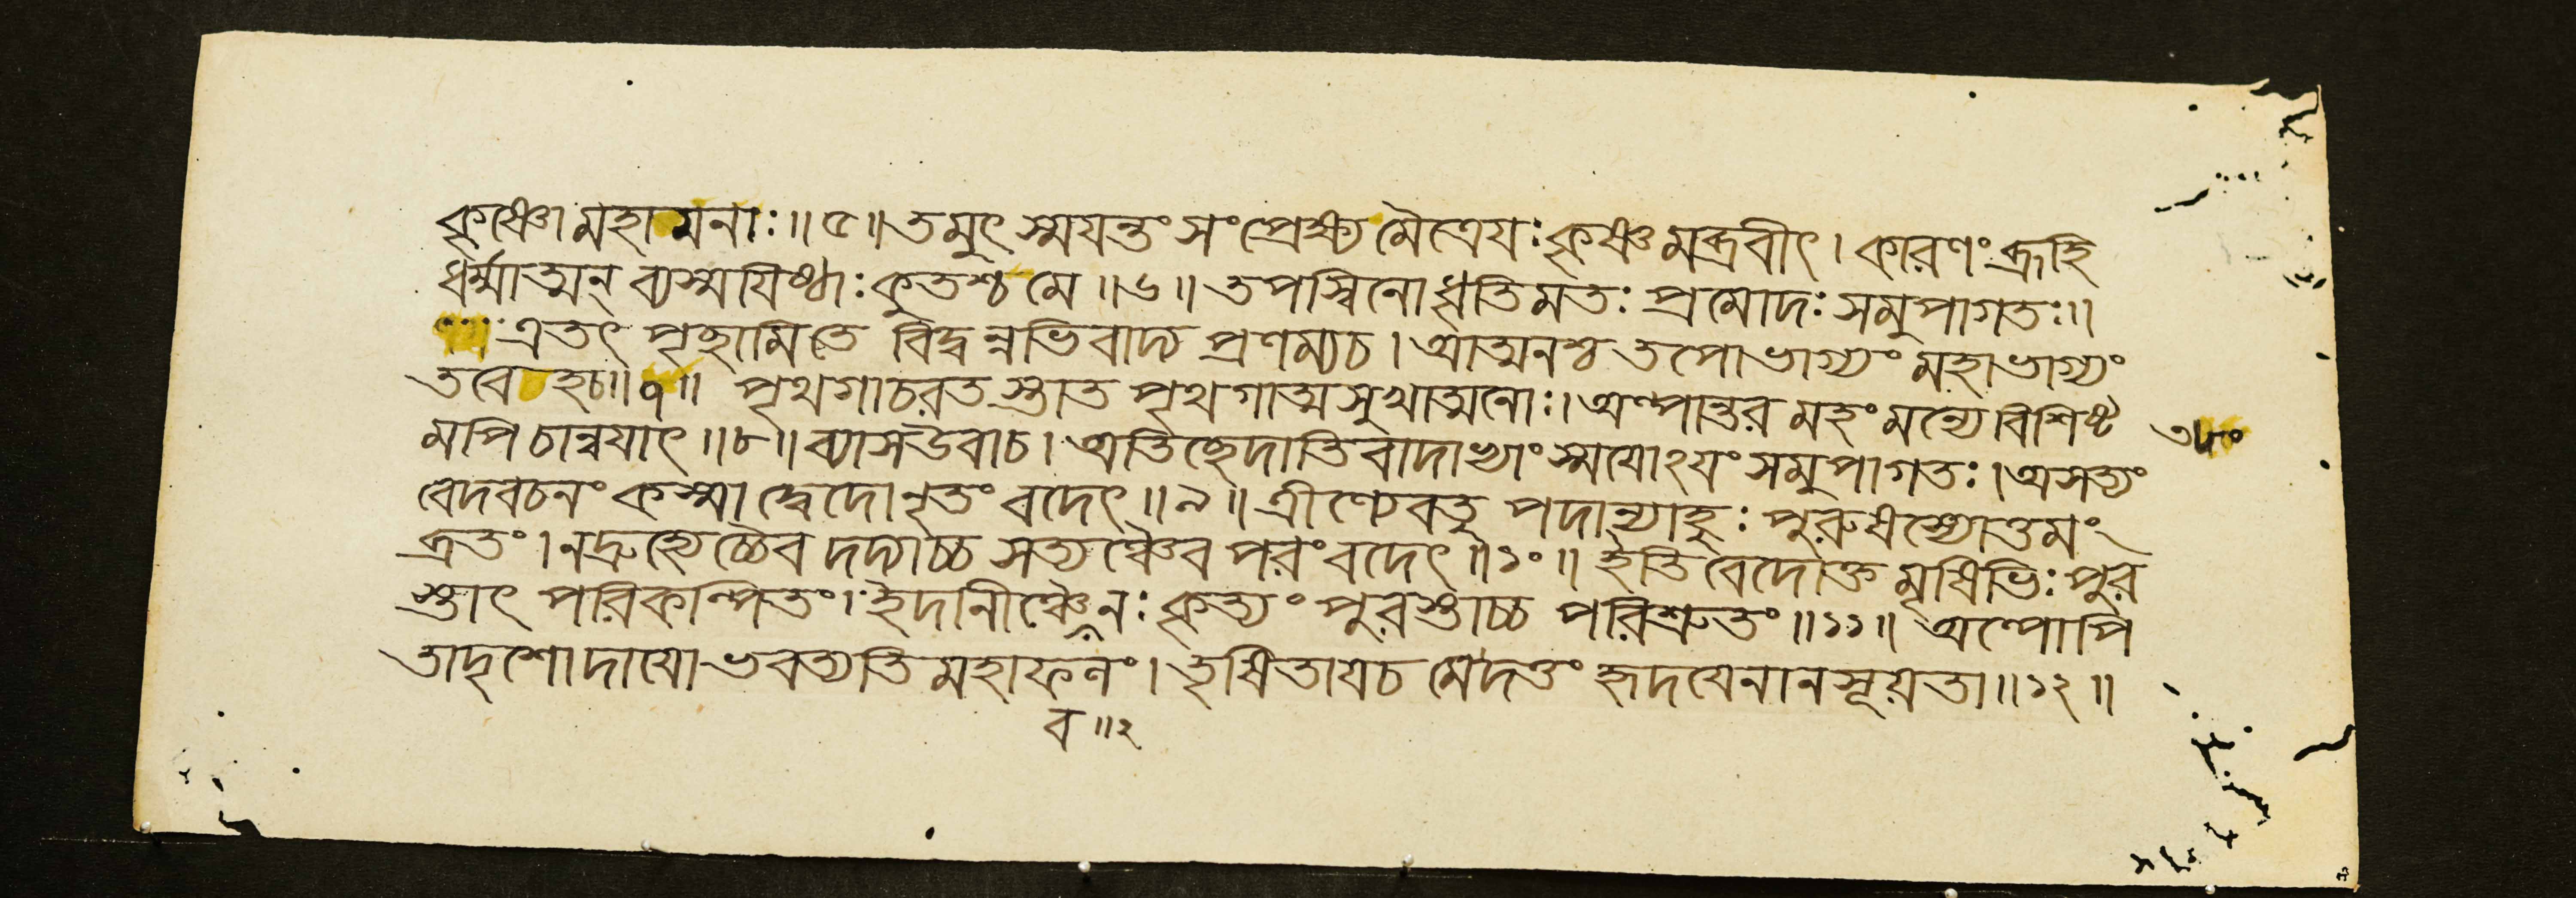 কৃষ্ণো মহামনাঃ॥৫॥ তমুৎ স্ময়ন্তং সংপ্রেক্ষ্য মৈত্রেয়ঃ কৃষ্ণমব্রবীৎ। কারণং ব্রূহি
ধর্ম্মাত্মন্ ব্যস্ময়িষ্ঠাঃ কুতশ্চ মে॥৬॥ তপস্বিনো ধৃতিমতঃ প্রমোদঃ সমুপাগতঃ॥
এতৎ পৃচ্ছামি তে বিদ্বন্নভিবাদ্য প্রণম্য চ। আত্মনশ্চ তপোভাগ্যং মহাভাগ্যং
তবেহ চ॥৭॥ পৃথগাচরত স্তাত পৃথগাত্মসুখাত্মনোঃ। অল্পান্তর মহং মন্যে বিশিষ্ট
মপি চান্বয়াৎ॥৮॥ ব্যাস উবাচ। অতিচ্ছেদাতিবাদাভ্যাং স্ময়োঽয়ং সমুপাগতঃ। অসত্যং
বেদবচনং কস্মাদ্বেদোনৃতং বদেৎ॥৯॥ ত্রীণ্যেবতু পদান্যাহুঃ পুরুষস্যোত্তমং
ব্রতং। ন দ্রুহ্যেচ্চৈব দদ্যাচ্চ সত্যঞ্চৈব পরং বদেৎ॥১০॥ ইতি বেদোক্ত মৃষিভিঃ পুর
স্তাৎ পরিকল্পিতং। ইদানীঞ্চৈব নঃ কৃত্যং পুরস্তাচ্চ পরিশ্রুতং॥১১॥ অল্পোপি
তাদৃশো দায়ো ভবত্যতি মহাফলং। তৃষিতায় চ মে দত্তং হৃদয়েনানসূয়তা॥১২॥
ব॥২